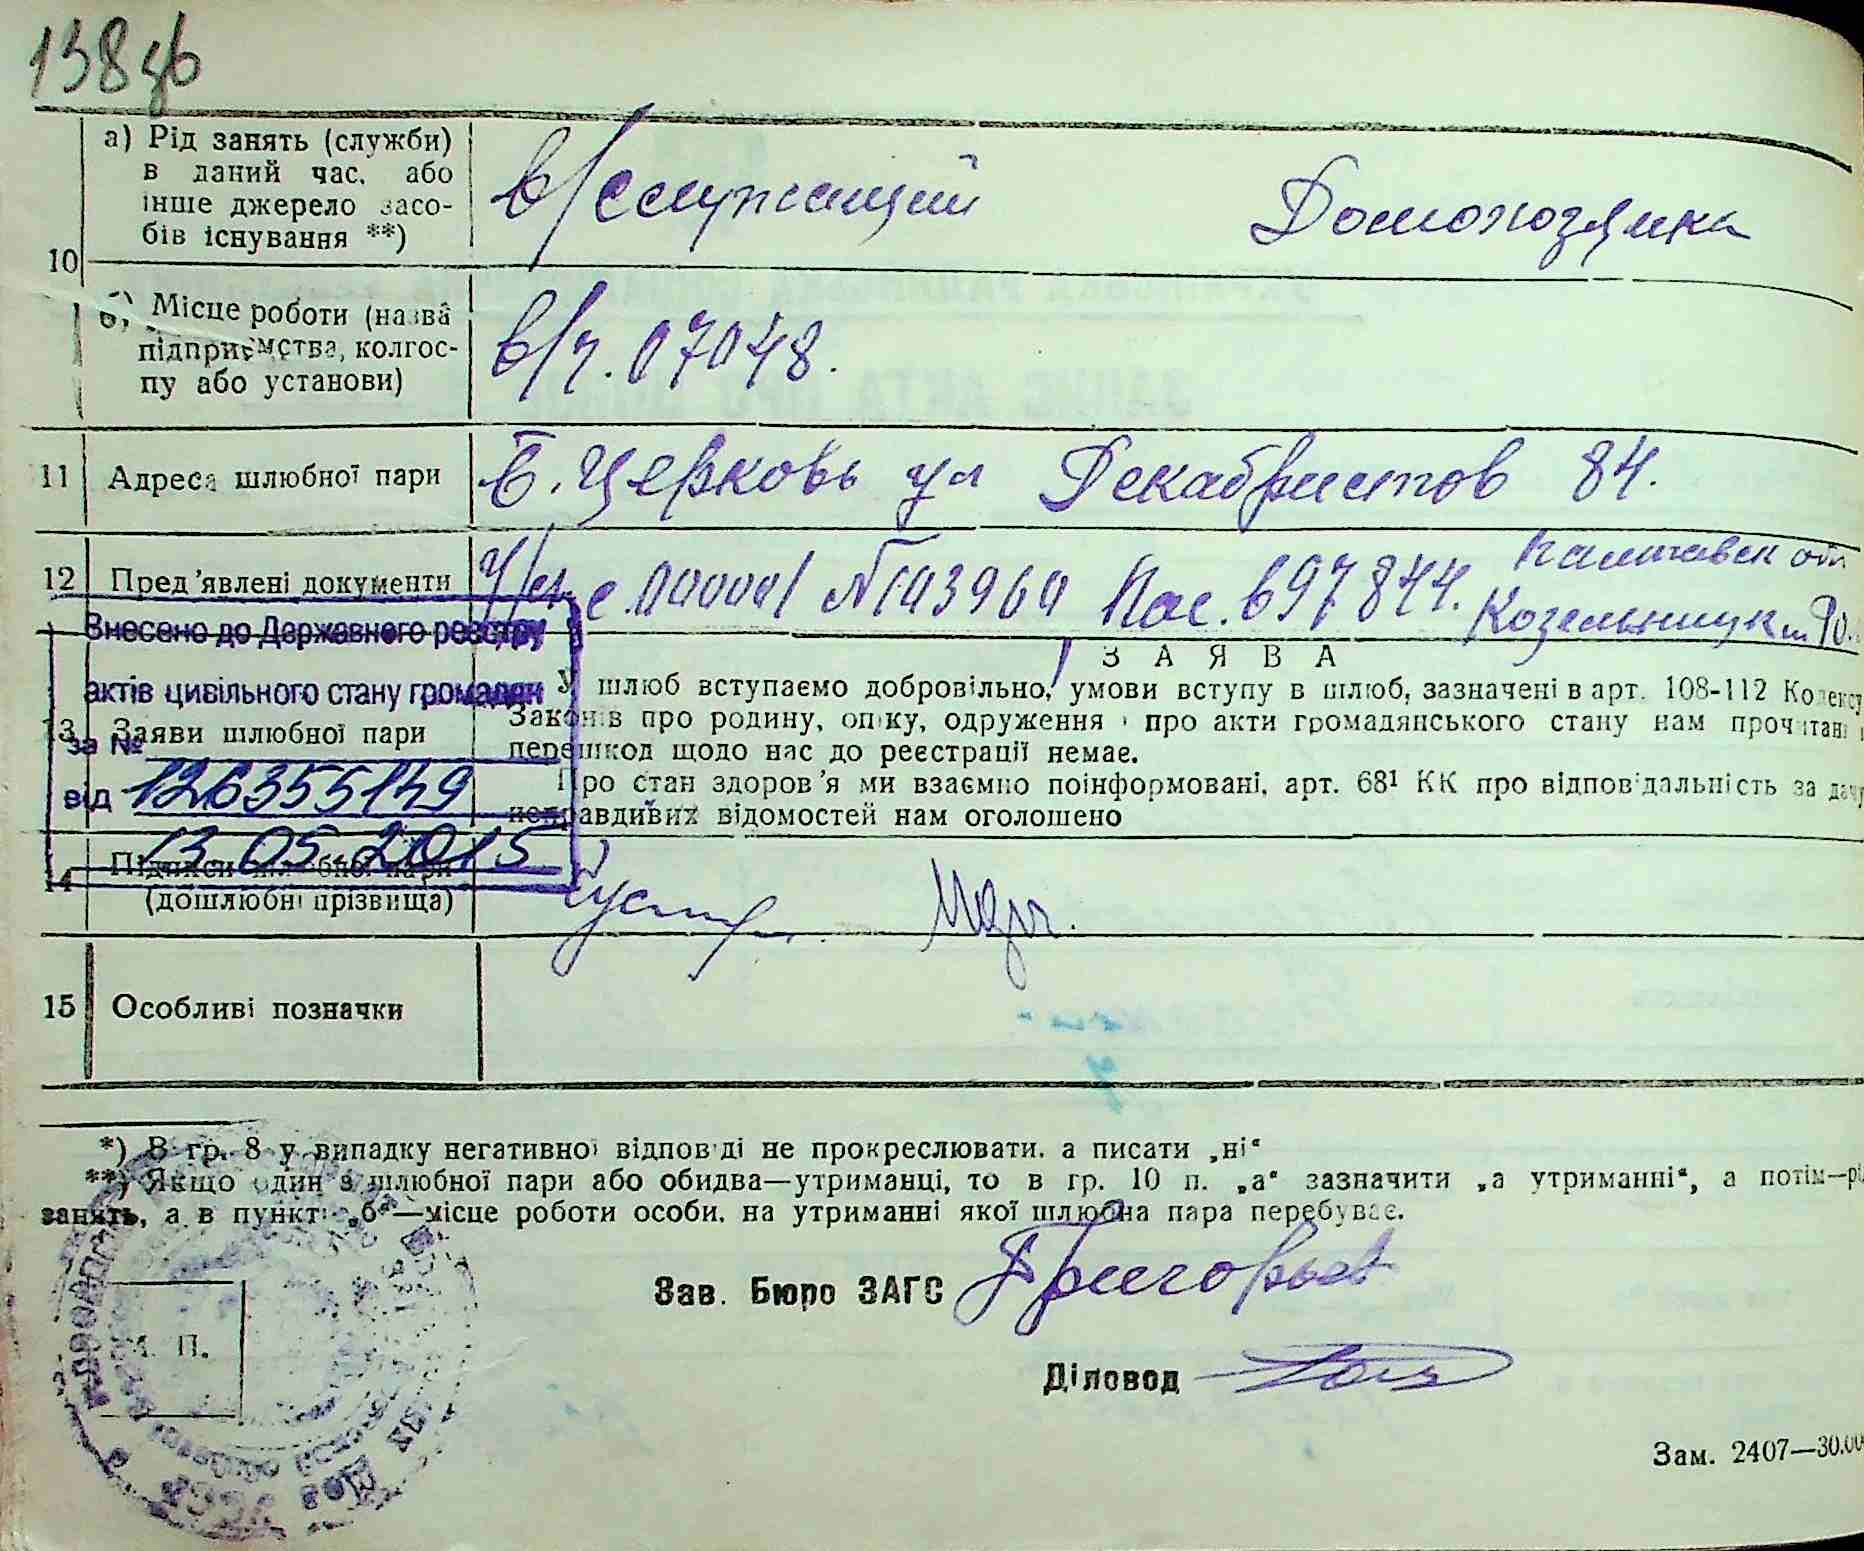 138зв
10
а) Рід занять (служби)
в даний час, або
інше джерело засо-
бів існування **)
в/служащий Домохозяйка
б) Місце роботи (назва
підприємства, колгос-
пу або установи)
в/ч. 07048.
11 Адреса шлюбної пари
Б. Церковь ул Декабристов 84.
12 Пред'явлені документи
Пас. 697844.
Внесено до Державного реєстру
актів цивільного стану громадян
за № 126355149
від 13.05.2015
13 Заяви шлюбної пари
ЗАЯВА
У шлюб вступаємо добровільно, умови вступу в шлюб, зазначені в арт. 108-112 Кодексу
Законів про родину, опіку, одруження і про акти громадянського стану нам прочитані і
перешкод щодо нас до реєстрації немає.
Про стан здоров'я ми взаємно поінформовані, арт. 68¹ КК про відповідальність за дачу
неправдивих відомостей нам оголошено
14 Підписи шлюбної пари
(дошлюбні прізвища)
15 Особливі позначки
*) В гр. 8 у випадку негативної відповіді не прокреслювати, а писати „ні“
**) Якщо один з шлюбної пари або обидва—утриманці, то в гр. 10 п. „а“ зазначити „а утриманні“, а потім—рід
занять, а в пункті „б“—місце роботи особи, на утриманні якої шлюбна пара перебуває.
Зав. Бюро ЗАГС
М. П.
Діловод
Зам. 2407—30.00